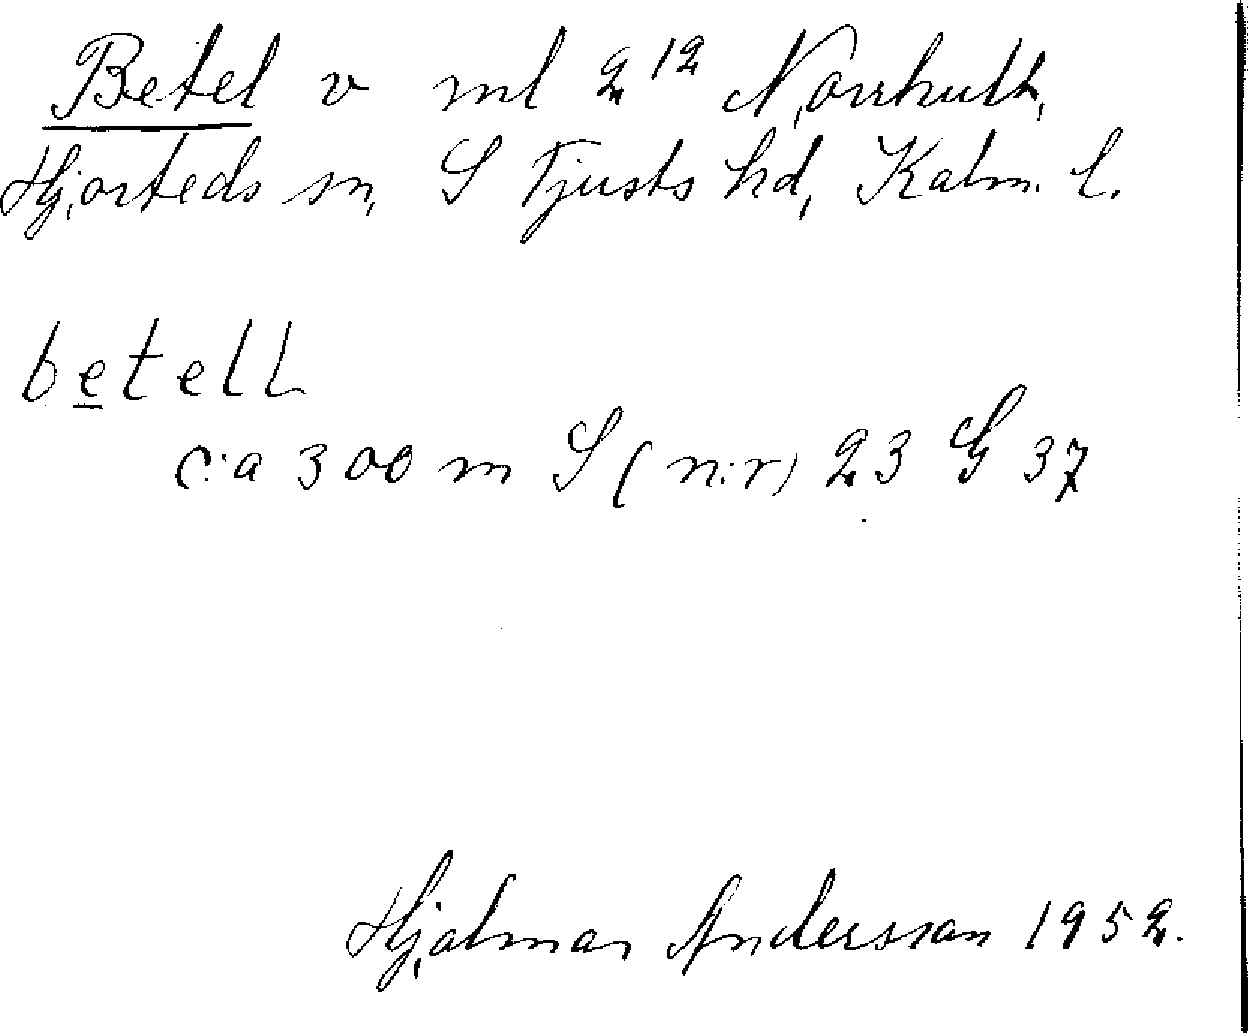 Betel v ml 2¹² Norrhult,
Hjorteds sn, S Tjusts hd, Kalm. l.
betell
c:a 300 m S (n:r) 23 G 37
Hjalmar Andersson 1952.